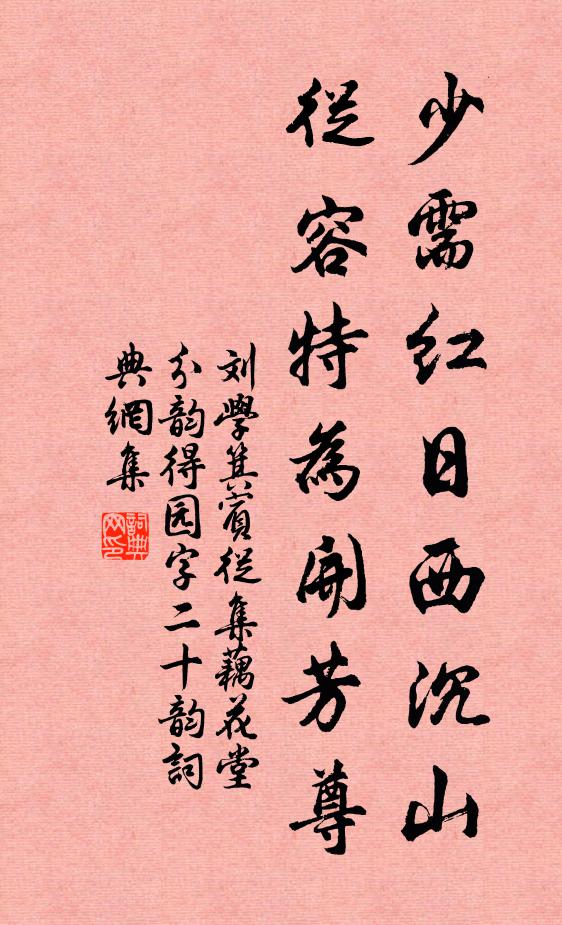 少需红日西沉山
從容特為開芳尊
刘學箕賓從集藕花堂
分韵得园字二十韵詞
典網集
詞典
网印